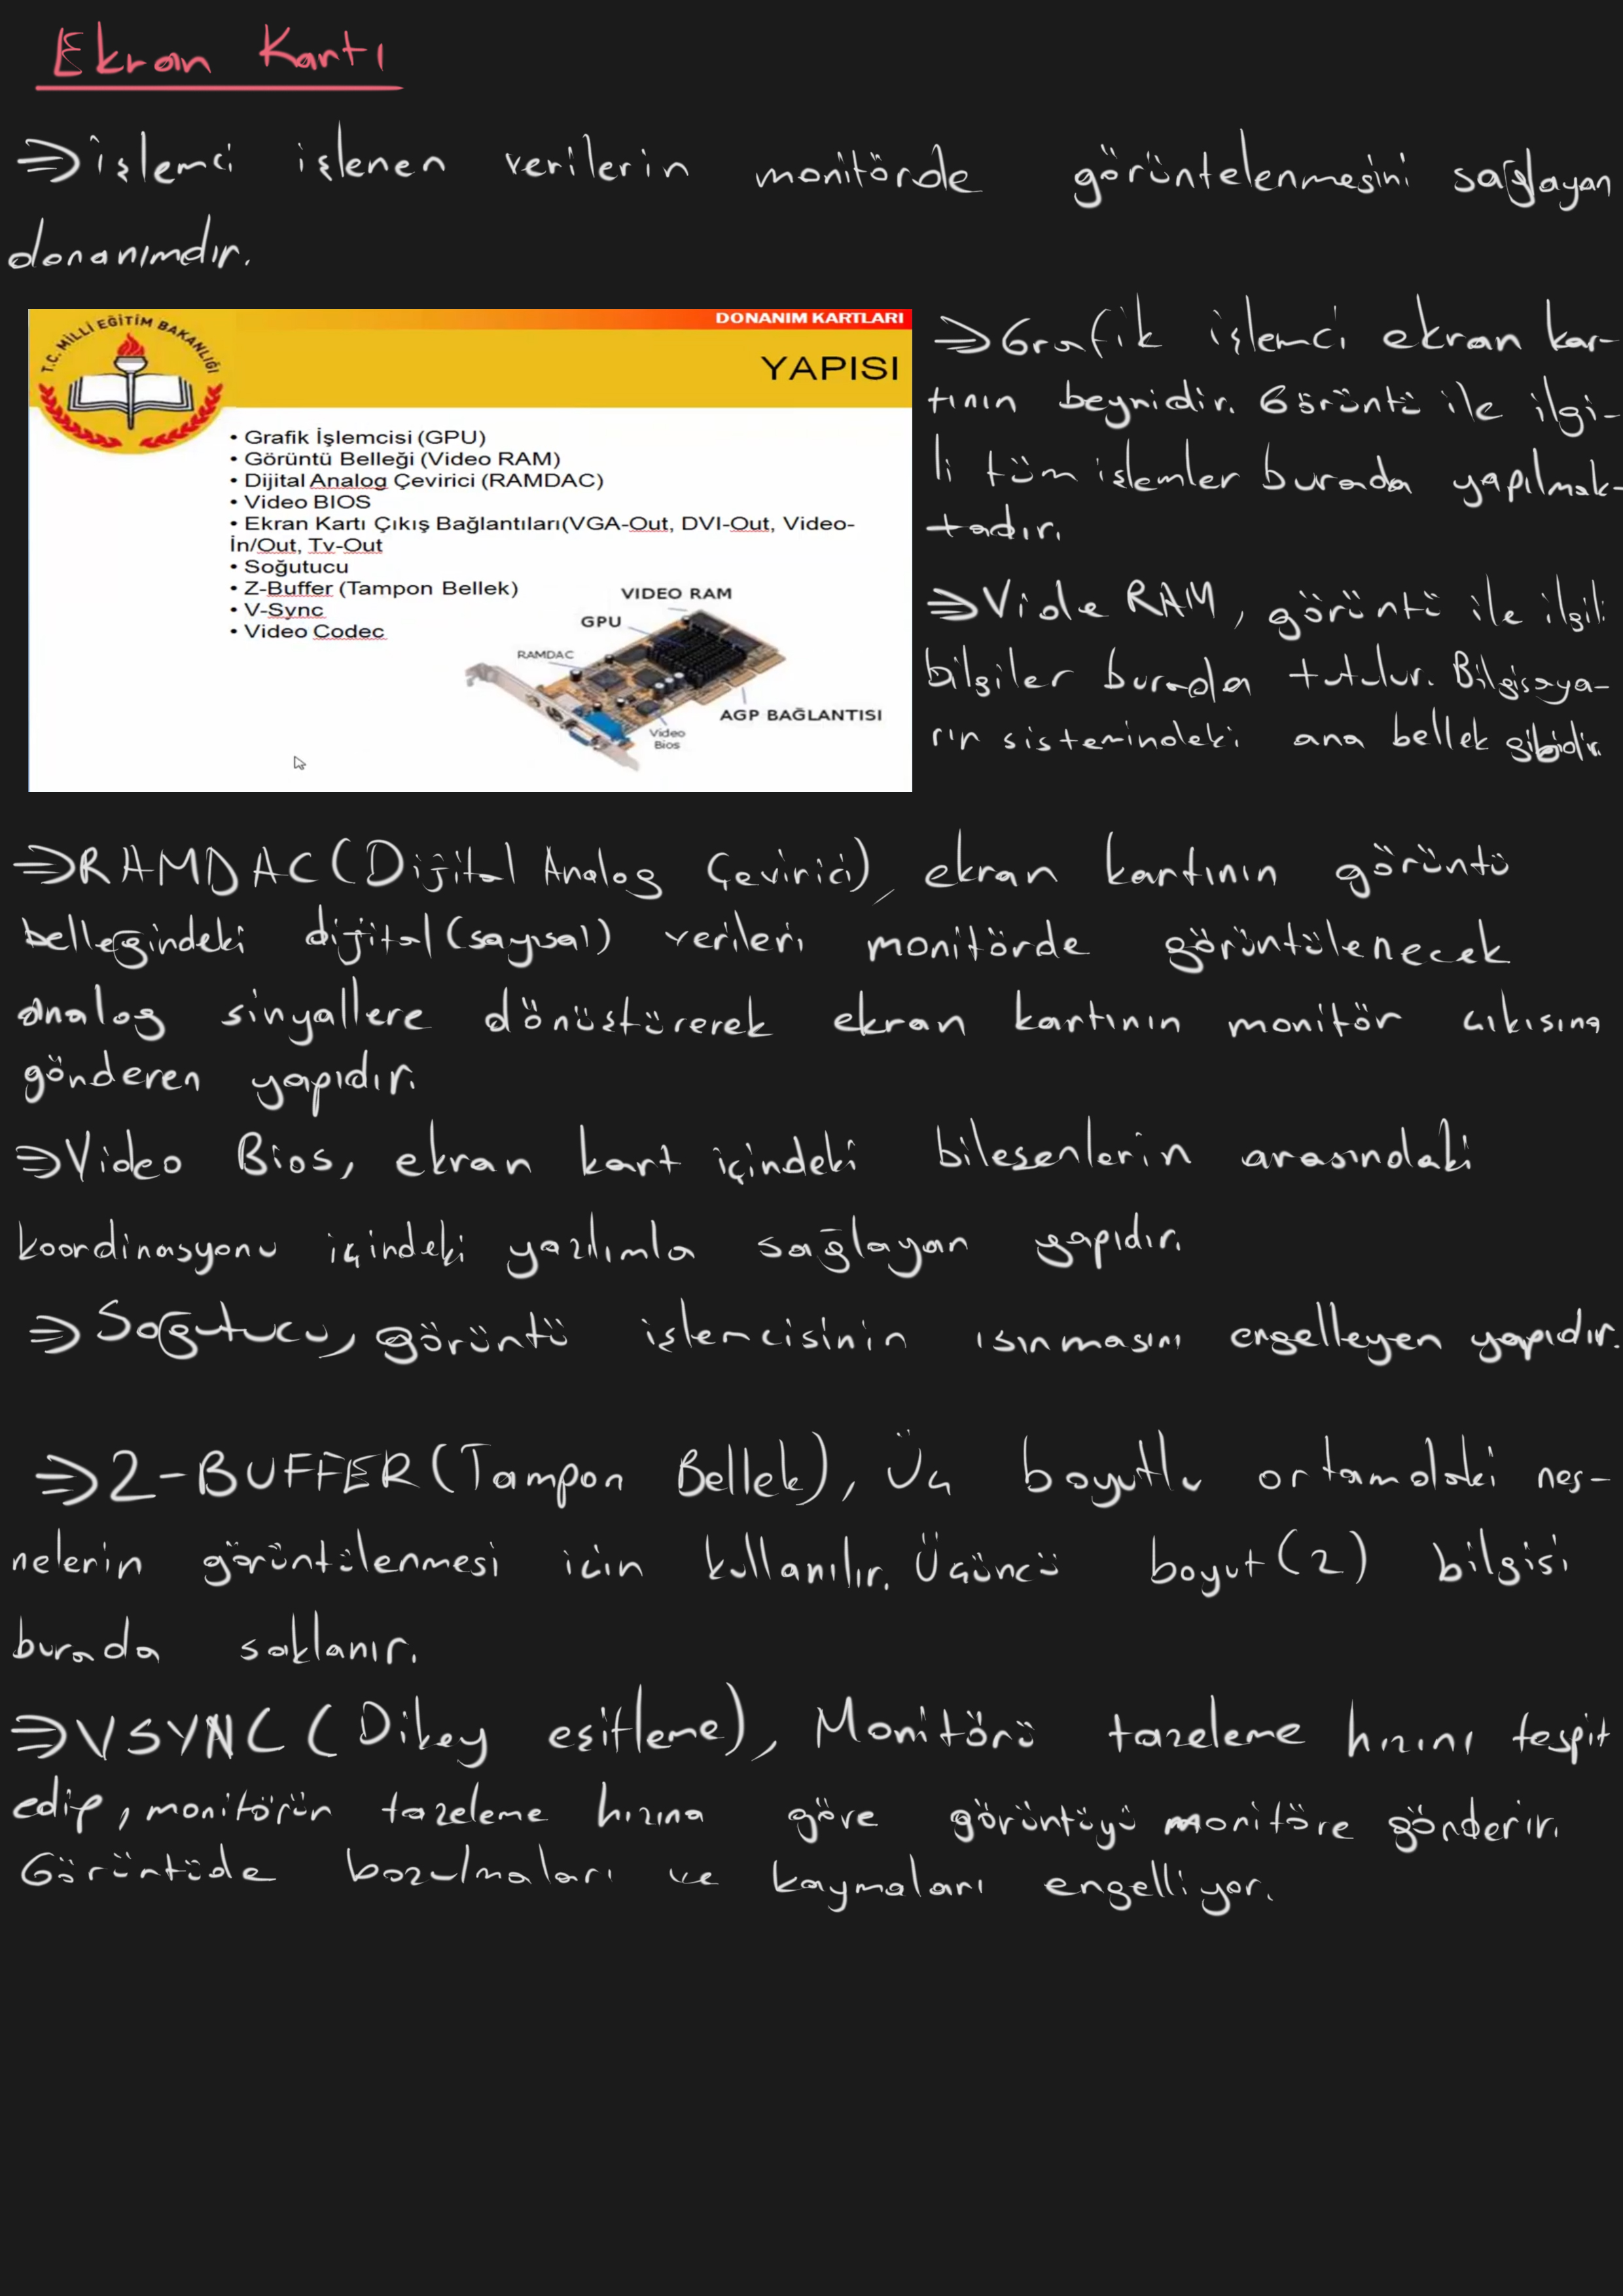 Ekran Kartı
⇒işlemci işlenen verilerin monitörde görüntelenmesini sağlayan
donanımdır.
T.C. MİLLİ EĞİTİM BAKANLIĞI
DONANIM KARTLARI
YAPISI
• Grafik İşlemcisi (GPU)
• Görüntü Belleği (Video RAM)
• Dijital Analog Çevirici (RAMDAC)
• Video BIOS
• Ekran Kartı Çıkış Bağlantıları(VGA-Out, DVI-Out, Video-
İn/Out, Tv-Out
• Soğutucu
• Z-Buffer (Tampon Bellek)
• V-Sync
• Video Codec
VIDEO RAM
GPU
RAMDAC
AGP BAĞLANTISI
Video
Bios
⇒Grafik işlemci ekran kar-
tının beynidir. Görüntü ile ilgi-
li tüm işlemler burada yapılmak-
tadır.
⇒Vide RAM, görüntü ile ilgili
bilgiler burada tutulur. Bilgisaya-
rın sistemindeki ana bellek gibidir.
⇒RAMDAC(Dijital Analog Çevirici), ekran kartının görüntü
belleğindeki dijital(sayısal) verileri monitörde görüntülenecek
analog sinyallere dönüştürerek ekran kartının monitör çıkısına
gönderen yapıdır.
⇒Video Bios, ekran kart içindeki bileşenlerin arasındaki
koordinasyonu içindeki yazılımla sağlayan yapıdır.
⇒Soğutucu, görüntü işlemcisinin ısınmasını engelleyen yapıdır.
⇒2-BUFFER(Tampon Bellek), Üç boyutlu ortamdaki nes-
nelerin görüntülenmesi için kullanılır. Üçüncü boyut(2) bilgisi
burada saklanır.
⇒VSYNC(Dikey eşitleme), Monitörü tazeleme hızını tespit
edip, monitörün tazeleme hızına göre görüntüyü monitöre gönderir.
Görüntüde bozulmaları ve kaymaları engelliyor.